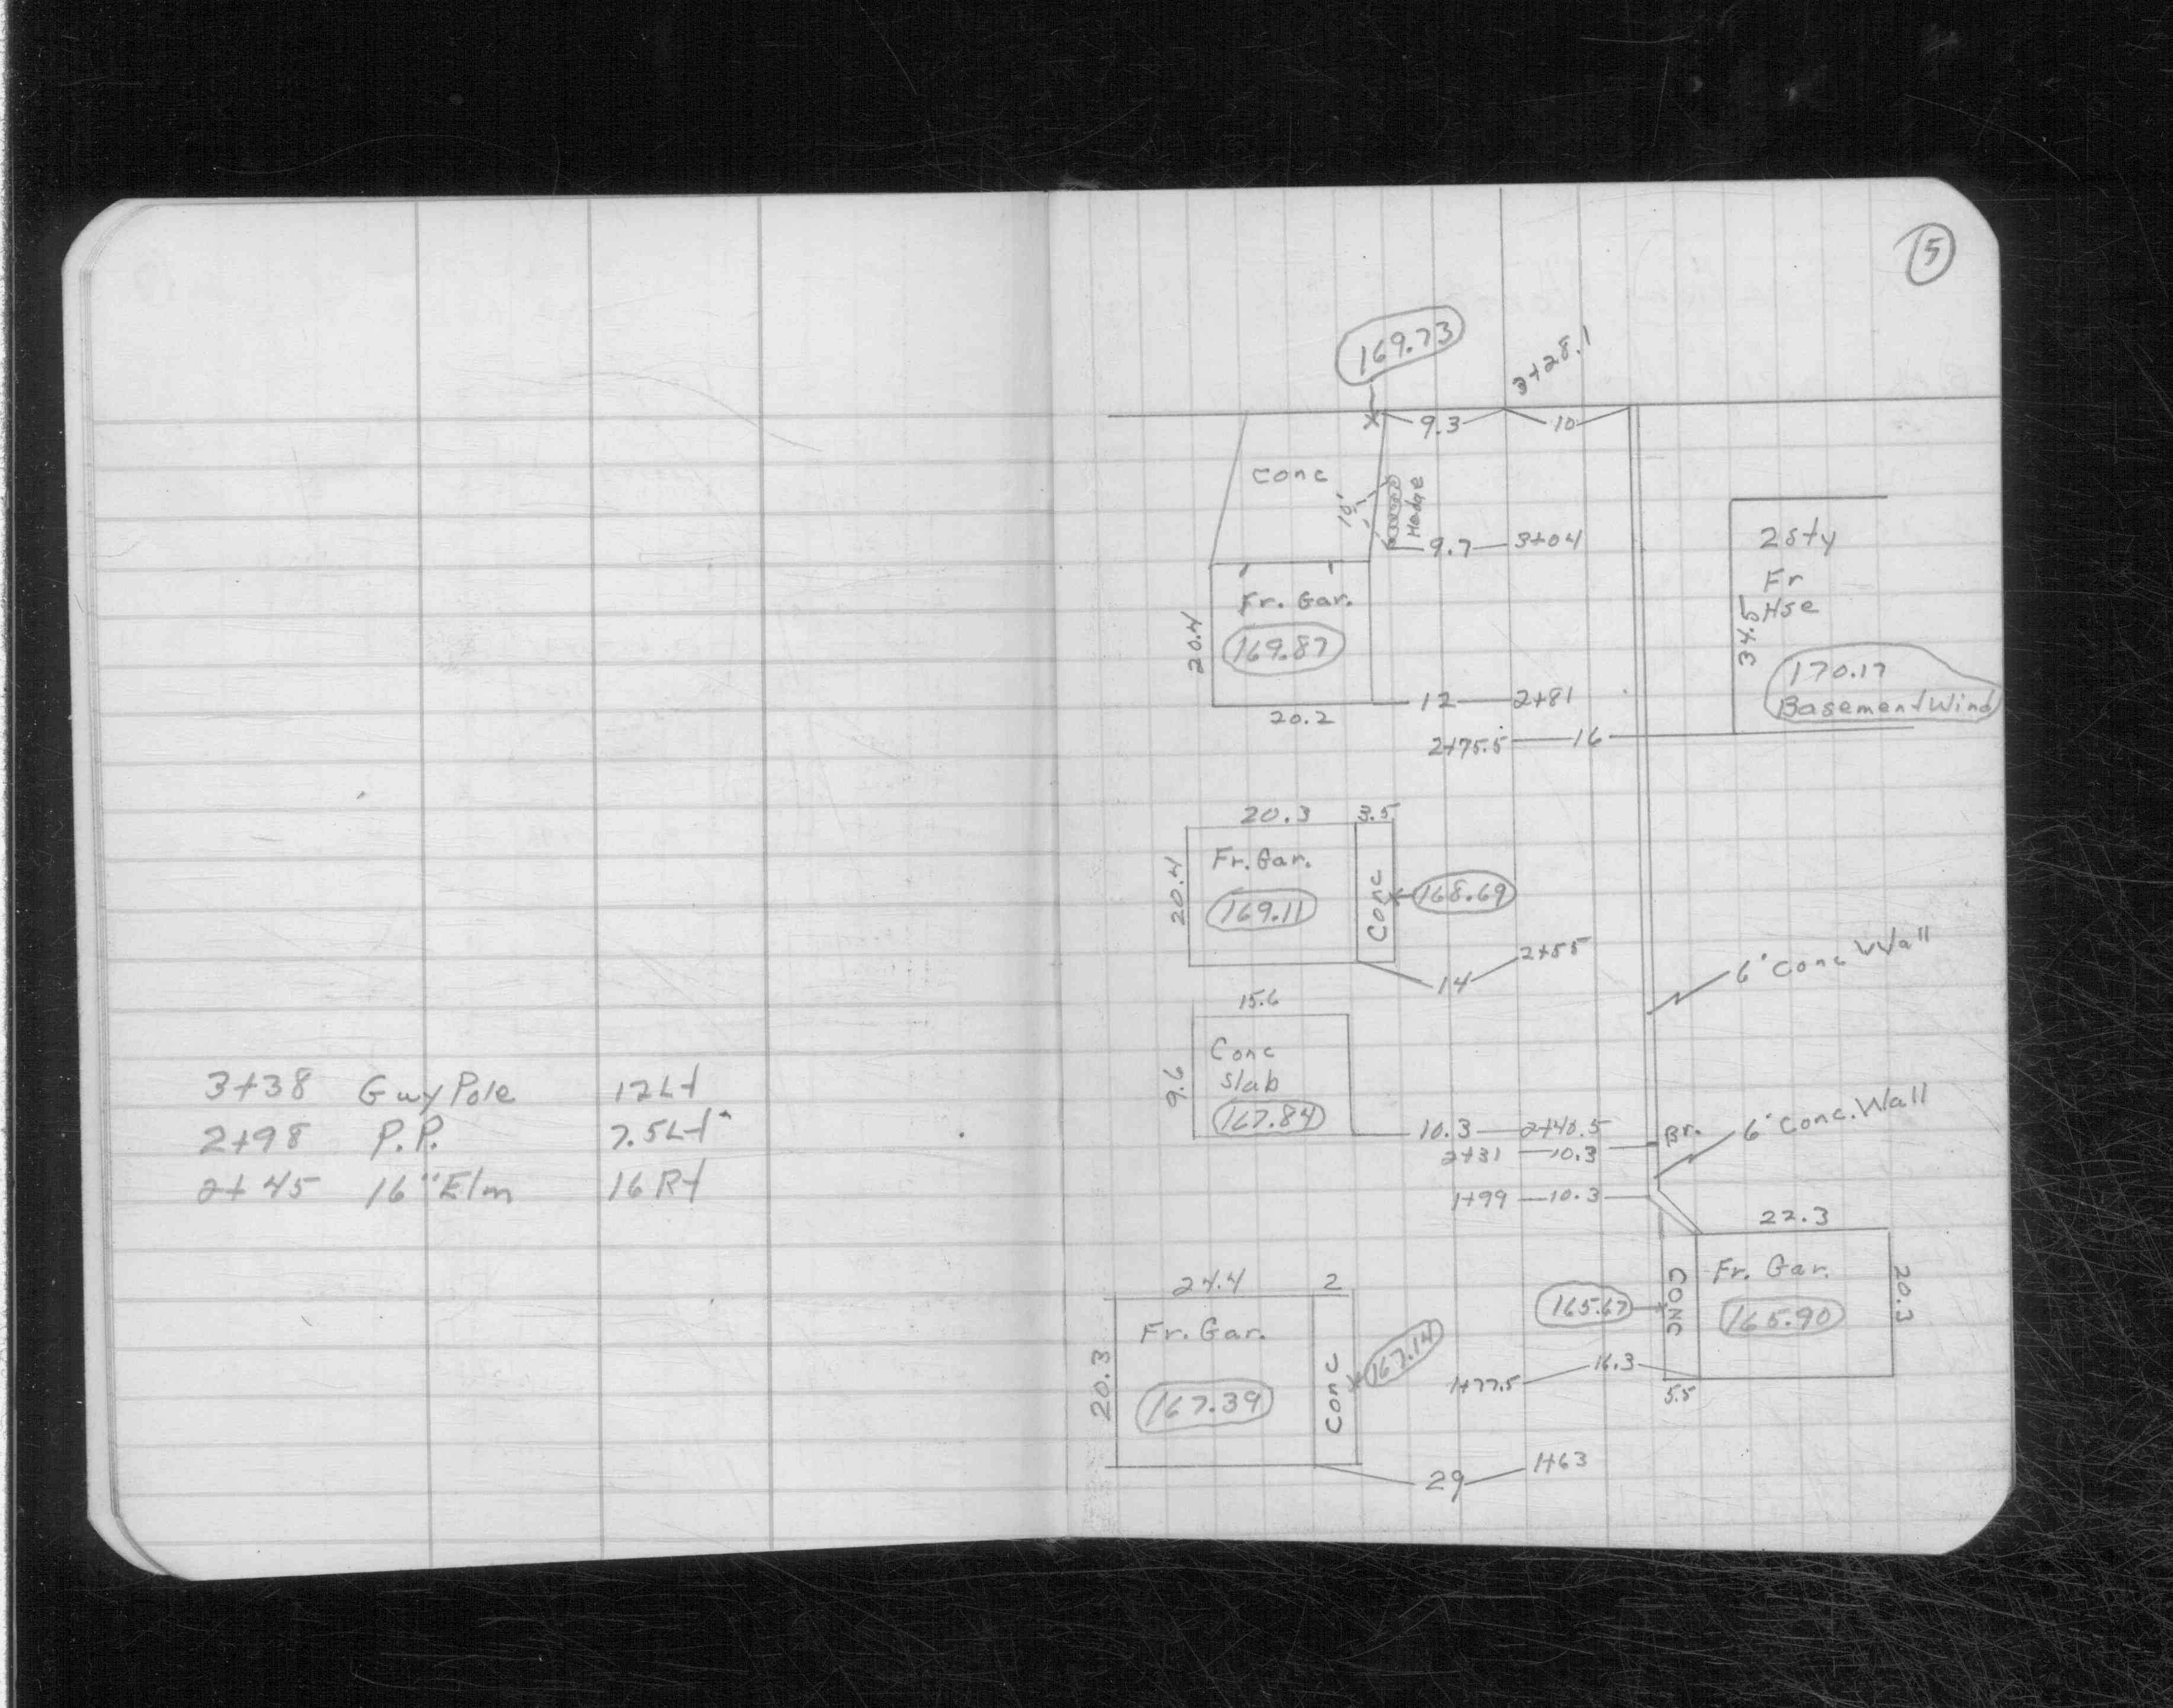 3+38 Guy Pole 12Lt
2+98 P.P. 7.5Lt
2+45 16"Elm 16Rt
5
169.73
3+28.1
9.3 10
Conc
10'
Hedge
9.7 3+04
2sty
Fr
Hse
34.5
170.17
Basement Wind
Fr. Gar.
169.87
20.4
20.2
12 2+81
2+75.5 16
20.3 3.5
Fr. Gar.
20.4
169.11
Conc
168.69
14 2+55
6" Conc Wall
15.6
Conc
Slab
167.84
9.6
10.3 2+40.5
Br.
6" Conc. Wall
2+31 10.3
1+99 10.3
22.3
Fr. Gar.
165.90
20.3
CONC
165.67
16.3
1+77.5
5.5
24.4 2
Fr. Gar.
167.39
20.3
Conc
167.14
29 1+63